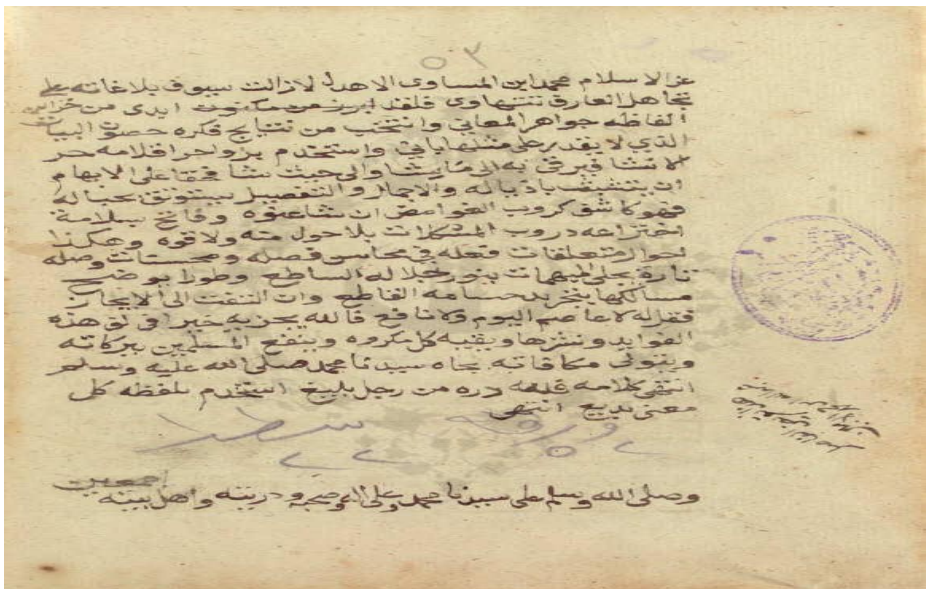 ٥٣
عز الاسلام محمد ابن المساوى الاهدل لازالت سيوف بلاغاته على
تجاهل العارف تتهاوى فلقد ابرز من مكنون ايدى من خزاين
الفاظه جواهر المعاني وانتخب من نتايج فكره حصون البيان
الذي لا يقدر على مثلها باني واستخدم بزواجر اقلامه حر
الانشا فبرقى به الى ما يشا والى حيث شا فحقا على الابهام
ان يتشبث باذياله والاجمال والتفصيل يستوثق بحباله
فهو كاشف كروب الغوامض ان شاعنوه وفاتح بسلامة
اختراعه دروب المشكلات بلا حول منه ولا قوه وهكذا
احوال متعلقات فعله في محاسن فصله ومحسنات وصله
تارة يجلي المبهمات بنور جلاله الساطع وطورا يوضح
مسالكها بتجريد حسامه القاطع وان التفت الى الايجاز
فقل له لا عاصم اليوم ولا نافع فالله يجزيه خيرا في لف هذه
الفوايد ونشرها ويقيه كل مكروه وينفع المسلمين ببركاته
ويتولى مكافاته بجاه سيدنا محمد صلى الله عليه وسلم
انتهى كلامه فلله دره من رجل بليغ استخدم بلفظه كل
معنى بديع انتهى
ورقه سطر
وصلى الله وسلم على سيدنا محمد وعلى اله وصحبه وذريته واهل بيته
اجمعين